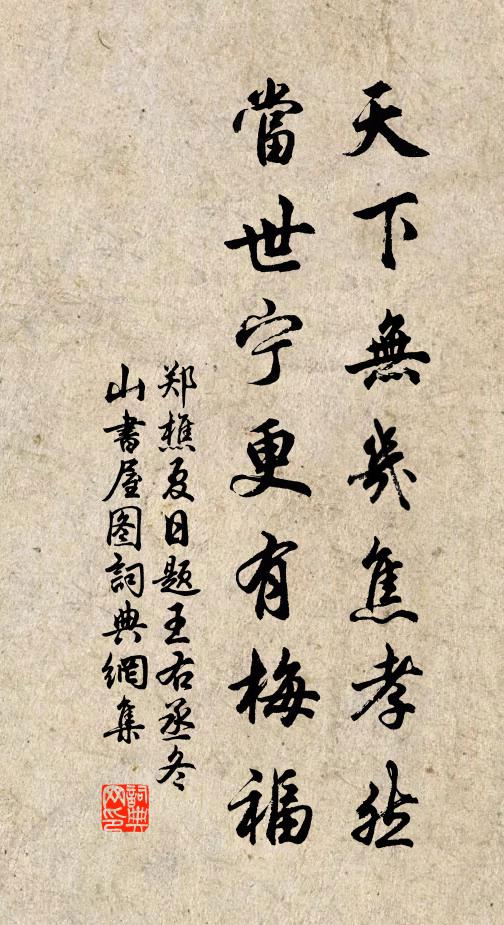 天下無幾焦孝然
當世宁更有梅福
郑樵夏日题王右丞冬
山書屋图詞典網集
詞典網印